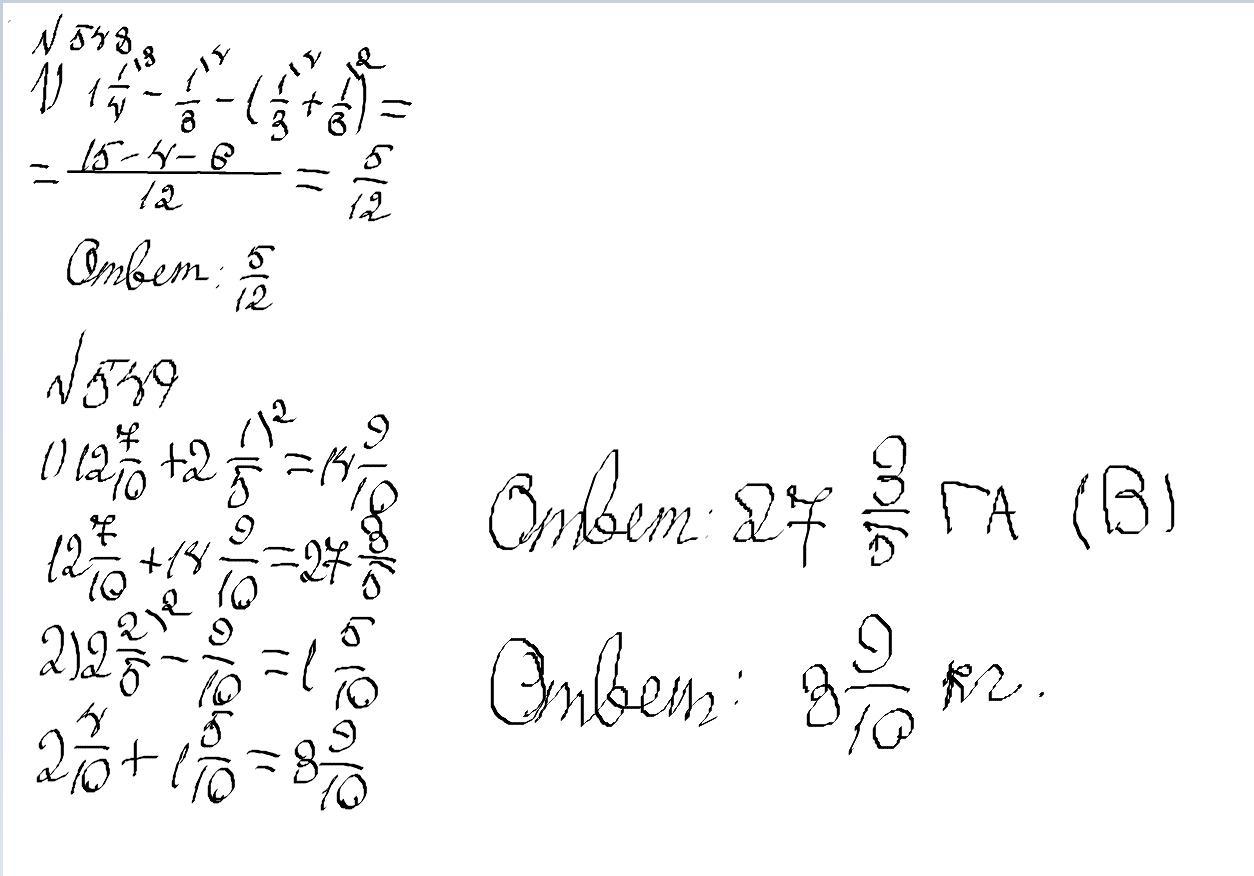 № 548
1) 1 1/4\3 - 1/3\4 - (1/3\4 + 1/6\2) =
= (15-4-6)/12 = 5/12
Ответ: 5/12
№549
1) 12 7/10 + 2 1/5\2 = 14 9/10
12 7/10 + 14 9/10 = 27 3/5
2) 2 2/5\2 - 9/10 = 1 5/10
2 4/10 + 1 5/10 = 3 9/10
Ответ: 27 3/5 ГА (В)
Ответ: 3 9/10 кг.